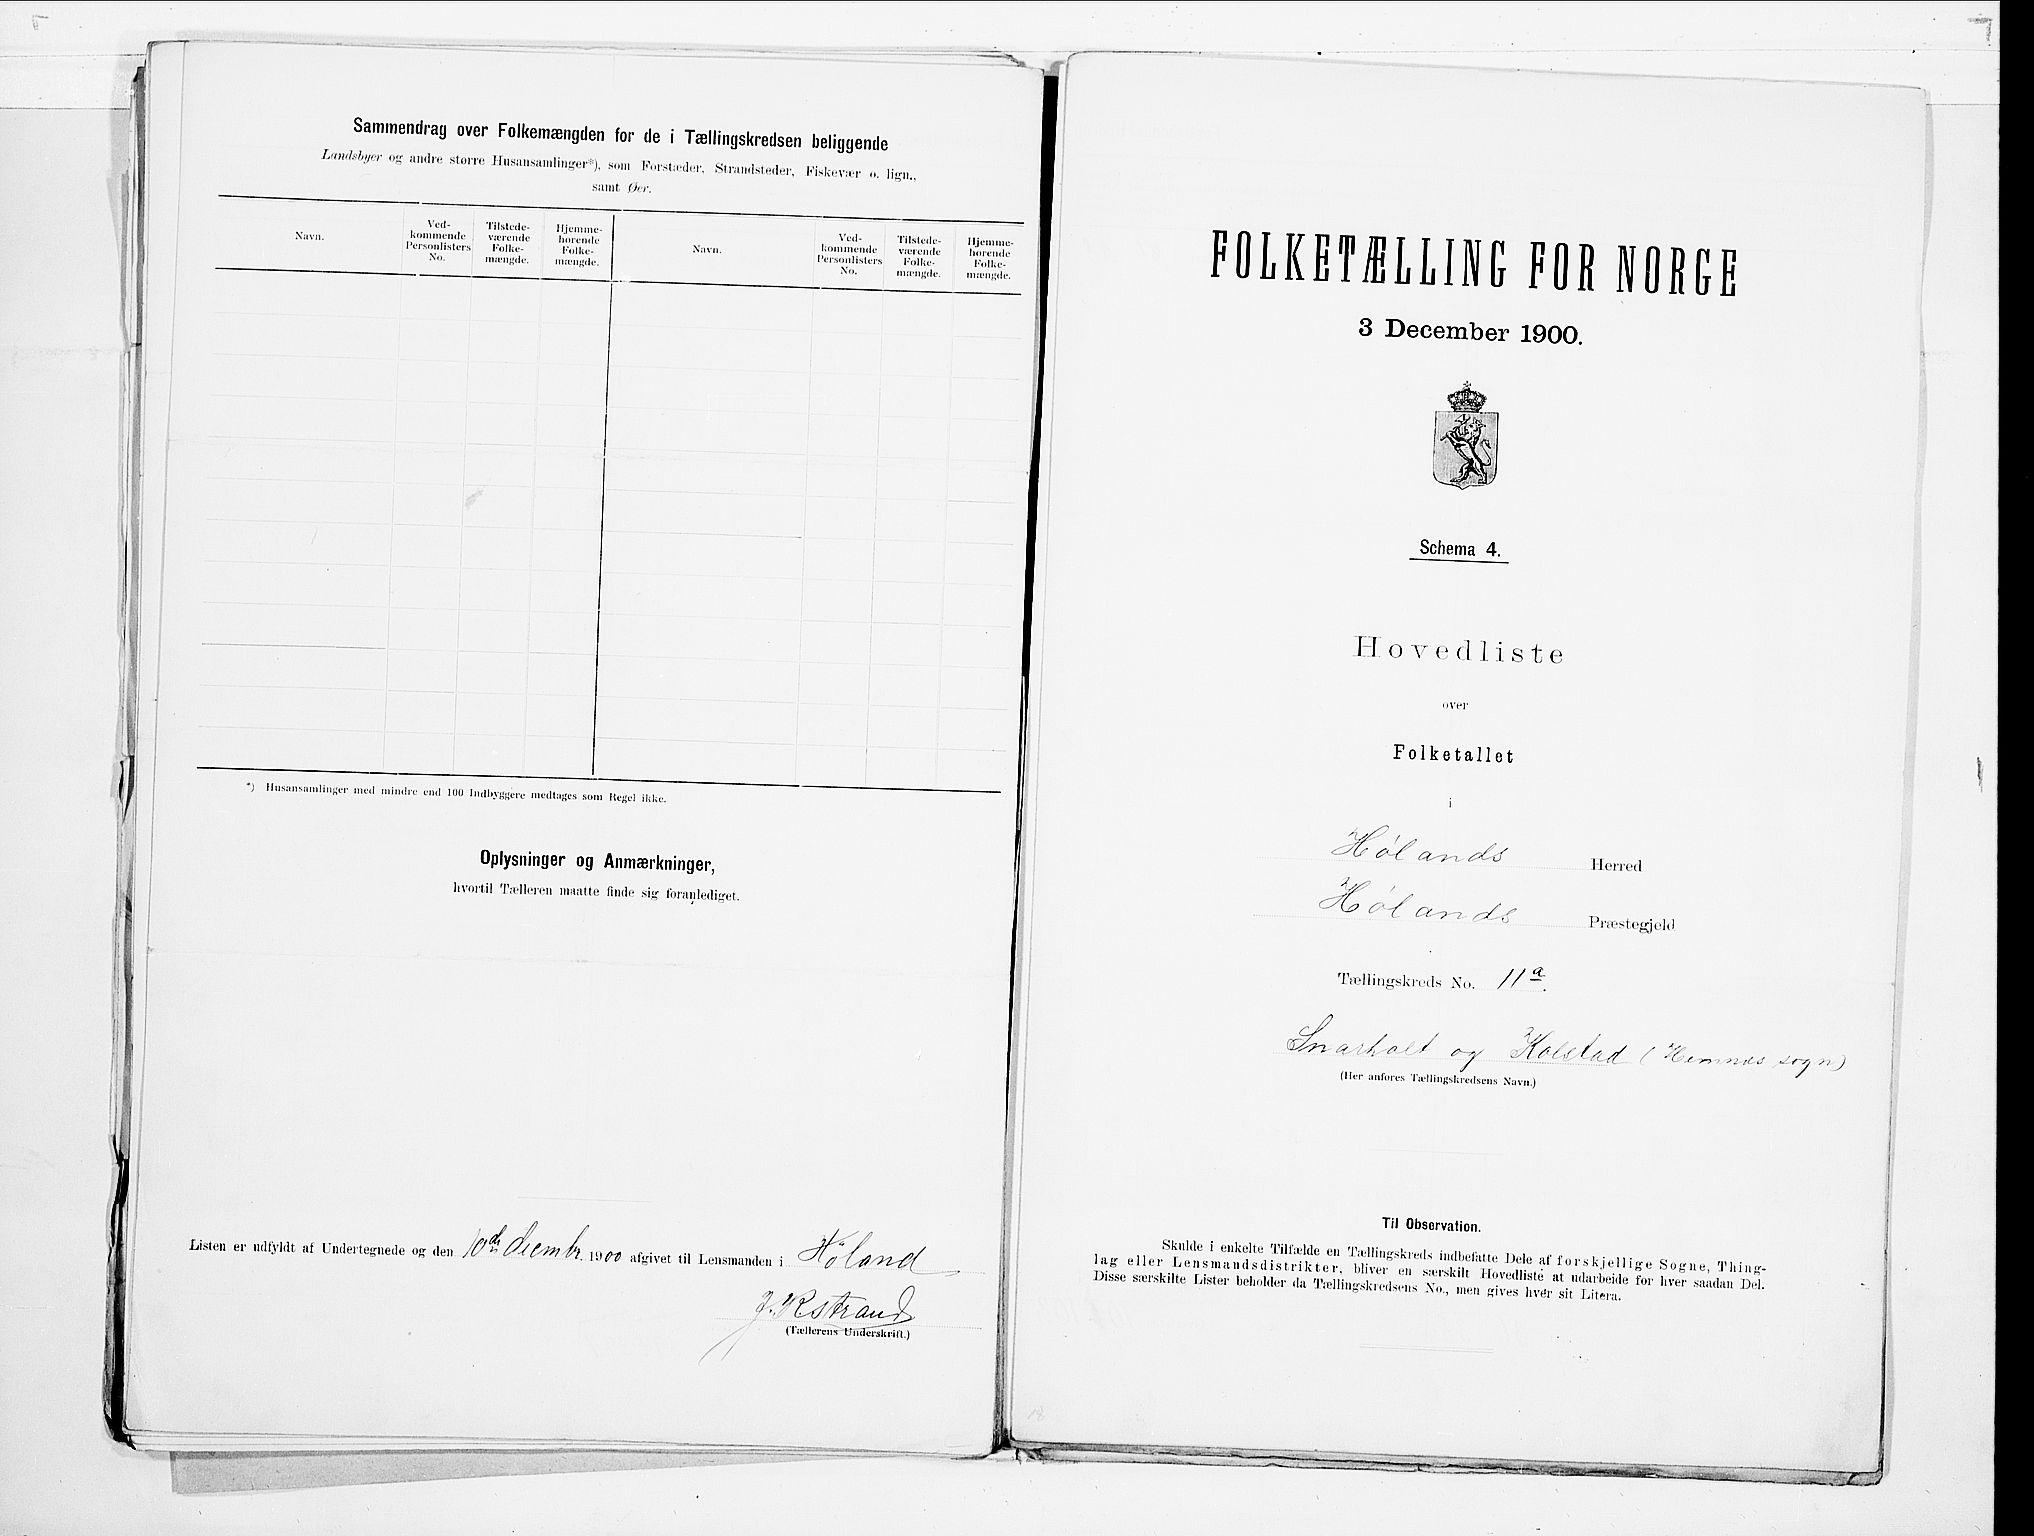 Sammendrag over Folkemængden for de i Tællingskredsen beliggende
Landsbyer og andre større Husansamlinger*), som Forstæder, Strandsteder, Fiskevær o. lign.,
samt Øer.
Navn.
Ved-
kommende
Personlisters
No.
Tilstede-
værende
Folke-
mængde.
Hjemme-
hørende
Folke-
mængde.
Navn.
Ved-
kommende
Personlisters
No.
Tilstede-
værende
Folke-
mængde.
Hjemme-
hørende
Folke-
mængde.
*) Husansamlinger med mindre end 100 Indbyggere medtages som Regel ikke.
Oplysninger og Anmærkninger,
hvortil Tælleren maatte finde sig foranlediget.
Listen er udfyldt af Undertegnede og den 10de decembr. 1900 afgivet til Lensmanden i Høland
(Tællerens Underskrift.)
FOLKETÆLLING FOR NORGE
3 December 1900.
Schema 4.
Hovedliste
over
Folketallet
i
Hølands Herred
Hølands Præstegjeld
Tællingskreds No. 11a.
Snarholt og Kolstad (Hemnes sogn)
(Her anføres Tællingskredsens Navn.)
Til Observation.
Skulde i enkelte Tilfælde en Tællingskreds indbefatte Dele af forskjellige Sogne, Thing-
lag eller Lensmandsdistrikter, bliver en særskilt Hovedliste at udarbeide for hver saadan Del.
Disse særskilte Lister beholder da Tællingskredsens No., men gives hver sit Litera.